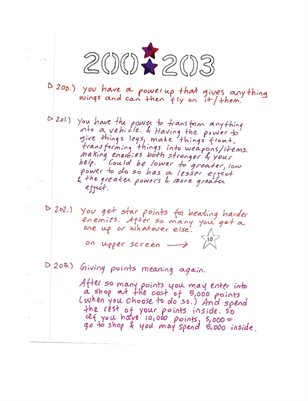 200 ★ 203
▷ 200.) you have a power up that gives anything
wings and can then fly on it/them.
▷ 201.) You have the power to transform anything
into a vehicle. & Having the power to
give things legs, make things float,
transforming things into weapons/items.
making enemies both stronger & your
help. Could be lower to greater, low
power to do so has a lesser effect
& the greater powers & more greater
effect.
▷ 202.) You get star points for beating harder
enemies. After so many you get a
one up or whatever else.
on upper screen → 10
▷ 203.) Giving points meaning again.
After so many points you may enter into
a shop at the cost of 5,000 points
(when you choose to do so.) And spend
the rest of your points inside. So
if you have 10,000 points, 5,000 =
go to shop & you may spend 5,000 inside.